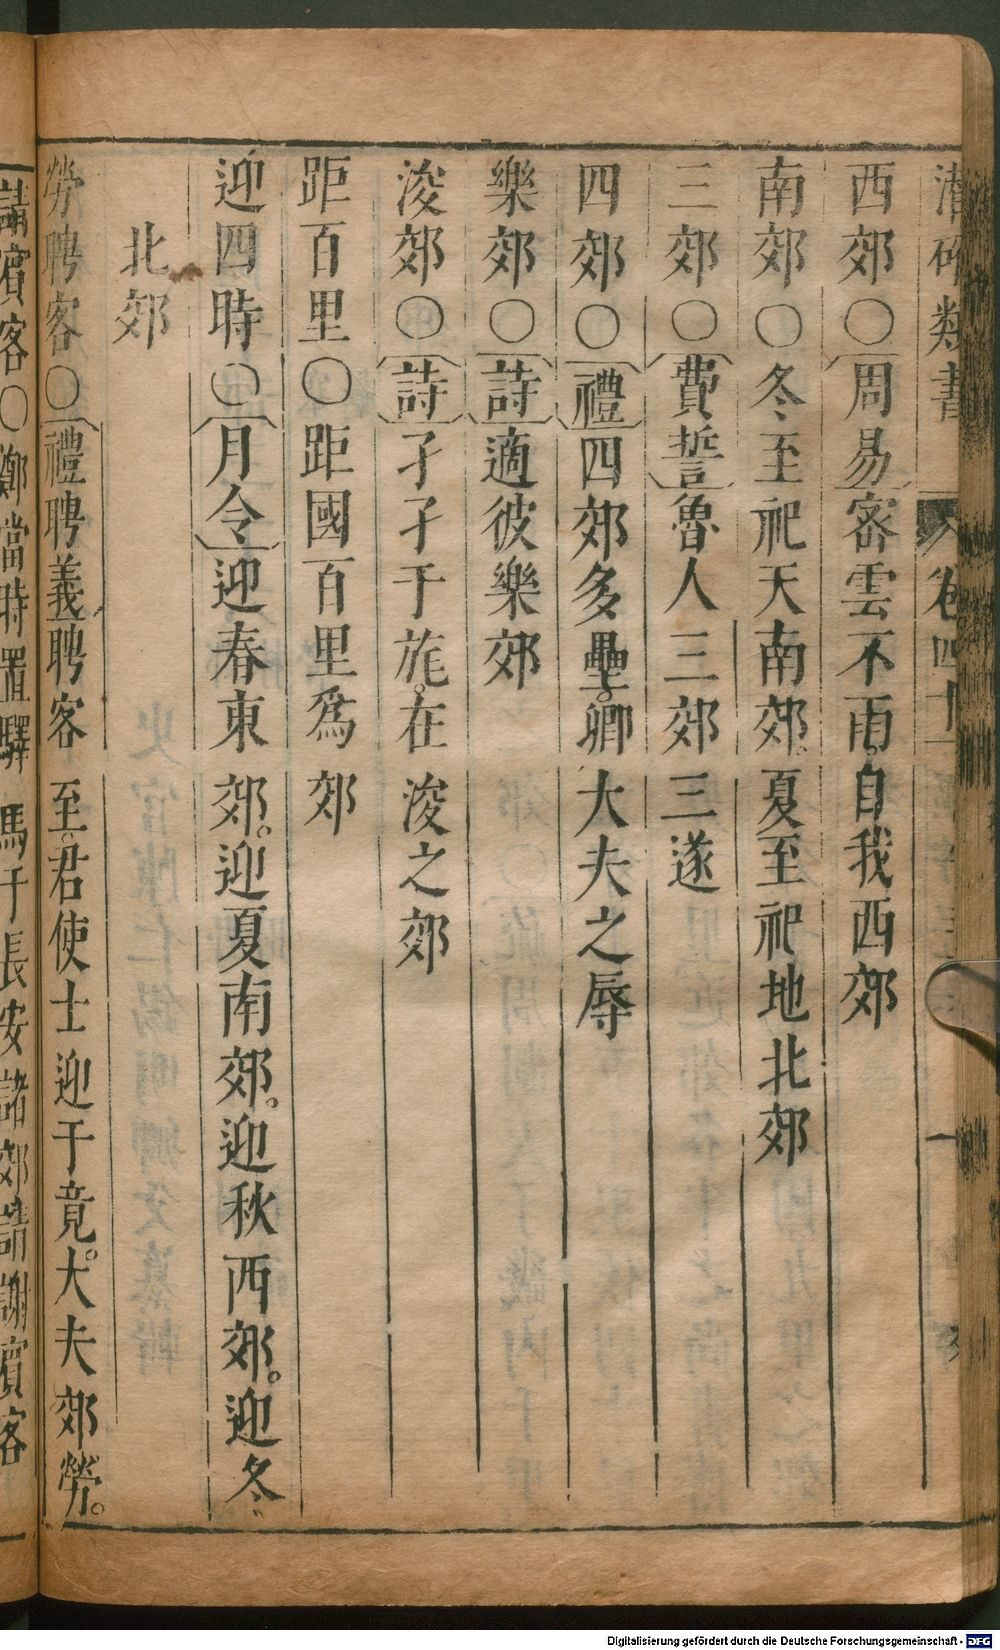 潛確類書 卷四十一
西郊〇周易密雲不雨。自我西郊
南郊〇冬至祀天南郊。夏至祀地北郊
三郊〇費誓魯人三郊三遂
四郊〇禮四郊多壘。卿大夫之辱
樂郊〇詩適彼樂郊
浚郊〇詩孑孑干旄。在浚之郊
距百里〇距國百里爲郊
迎四時〇月令迎春東郊。迎夏南郊。迎秋西郊。迎冬
北郊
勞聘客〇禮聘義聘客至。君使士迎于竟。大夫郊勞。
請賓客〇鄭當時置驛馬于長安諸郊請謝賓客
Digitalisierung gefördert durch die Deutsche Forschungsgemeinschaft - DFG